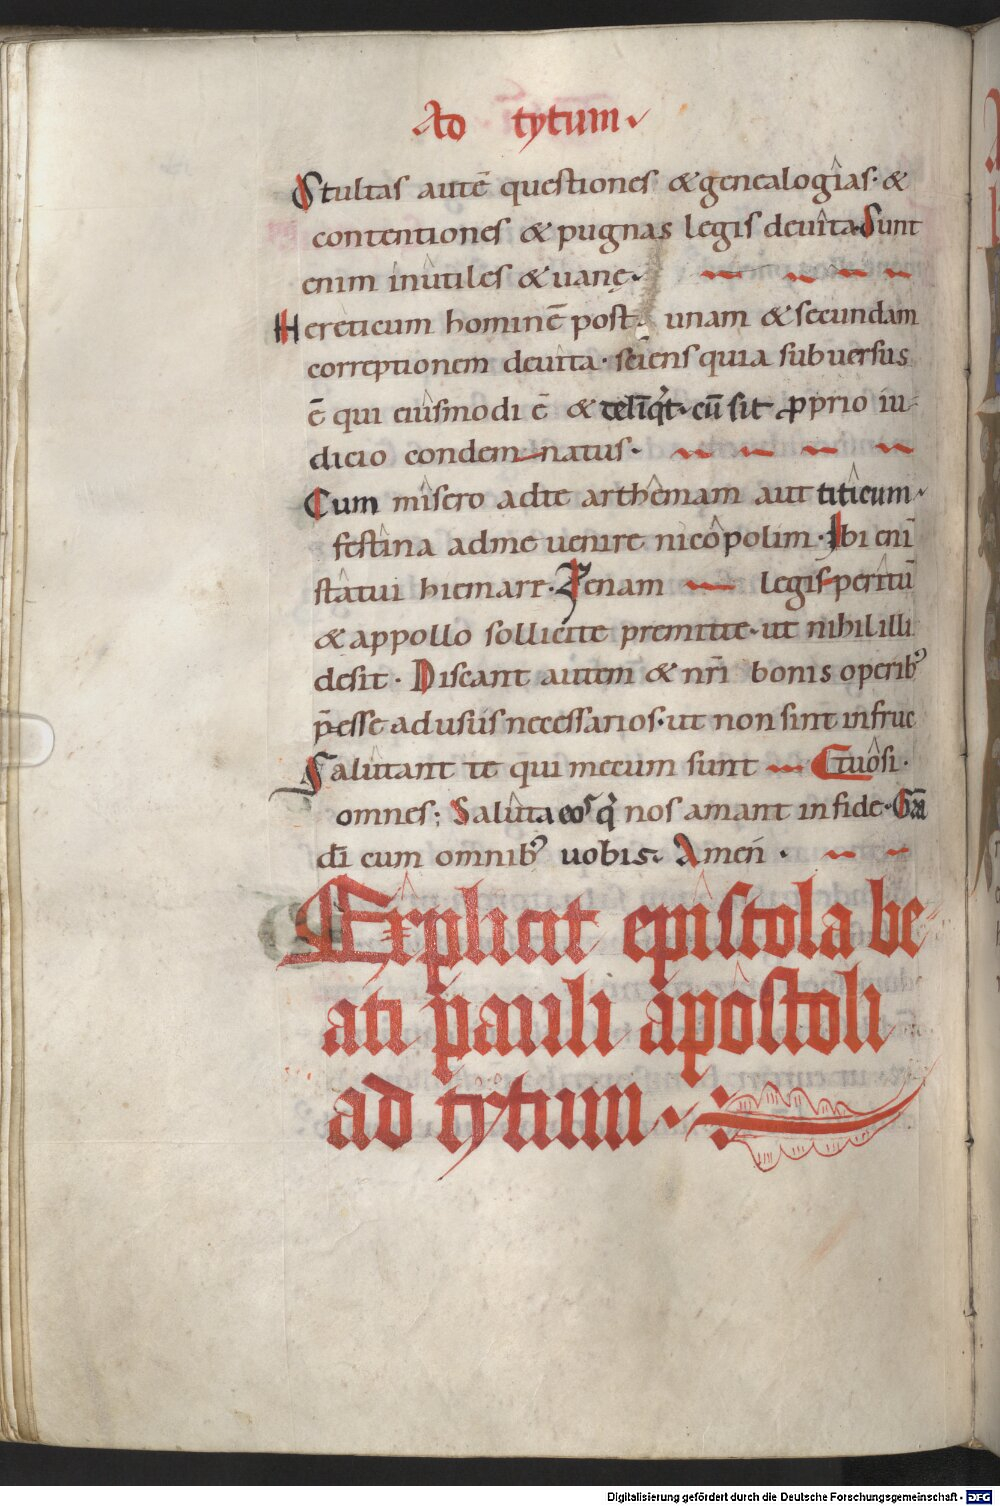 Ad tytum
Stultas autē questiones & genealogîas · &
contentiones & pugnas legis deuîta · Sunt
enim inûtiles & uanę ·
Hereticum hominē post unam & secundam
correptionem deuîta · sciens quia subuersus
ē qui eiusmodi ē & delīqt · cū sit ꝓprio iu-
dicio condemnatus ·
Cum mîsero ad te arthêmam aut titîcum ·
festîna ad me uenire nicôpolim · Ibi enī
stâtui hiemare · Zenam legisperîtū
& appollo sollicite premitte · ut nihil illi
desit · Discant autem & nrī bonis operib᾽
p̄esse ad usus necessarios · ut non sint infruc
Salûtant te qui mecum sunt tuôsi ·
omnes; Salûta eos q̇ nos amant in fide · Gr̄a
dī cum omnib᾽ uobis · Amen̄ ·
Explicit epistola be-
ati pauli apostoli
ad tytum ·
Digitalisierung gefördert durch die Deutsche Forschungsgemeinschaft - DFG